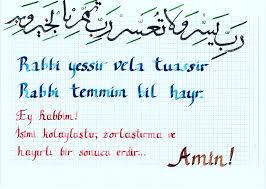 رَبِّ يَسِّرْ وَلَا تُعَسِّرْ رَبِّ تَمِّمْ بِالْخَيْرِ
Rabbi yessir vela tuassir
Rabbi temmim bil hayr.
Ey Rabbim!
İşimi kolaylaştır, zorlaştırma ve
hayırlı bir sonuca erdir...
Amin!